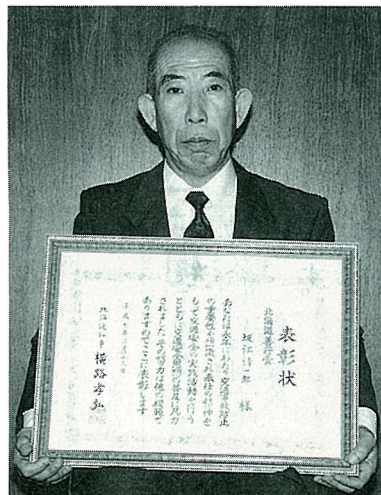 表彰状
北海道善行賞
様
あなたは永年にわたり交通事故防止
の重要性を認識され奉仕の精神を
もって交通安全の実践活動を行う
とともに交通安全思想の普及に尽力
されましたその努力は他の模範で
ありますのでここに表彰します
北海道知事 横路孝弘